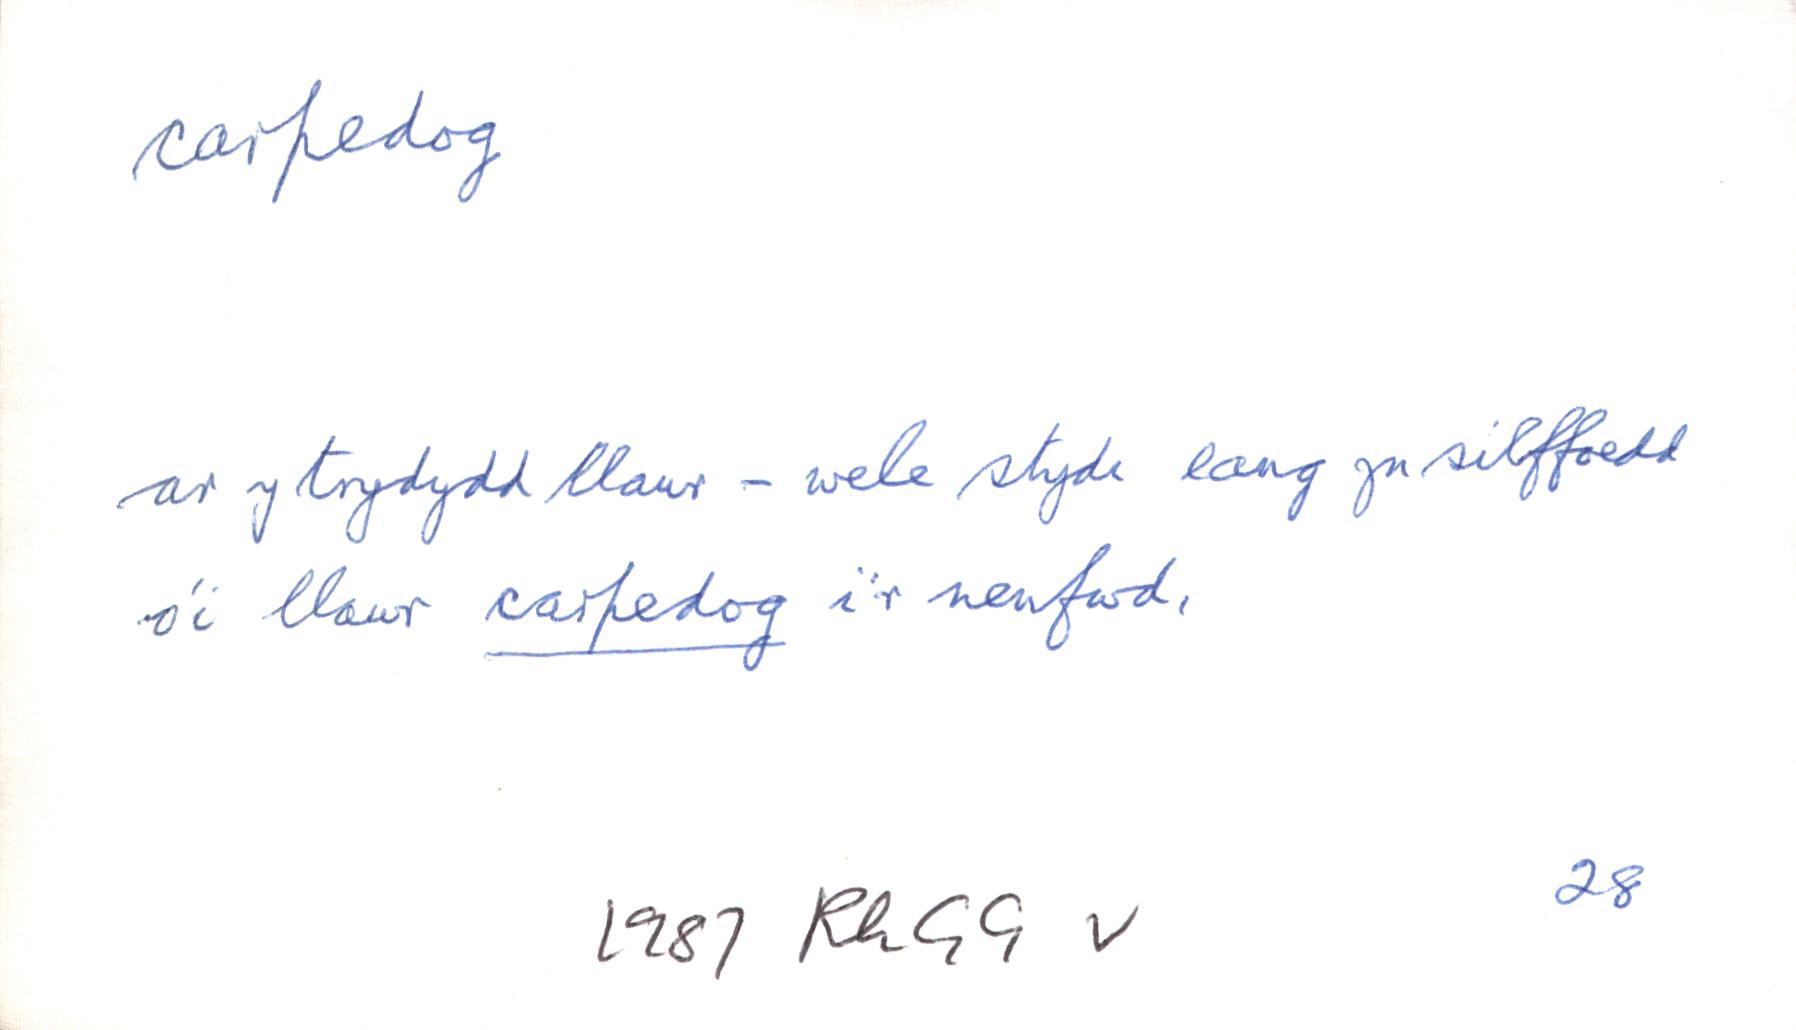 carpedog
ar y trydydd llawr - wele stydi eang yn silffoedd
o'i llawr carpedog i'r nenfwd.
28
1987 RhGG v